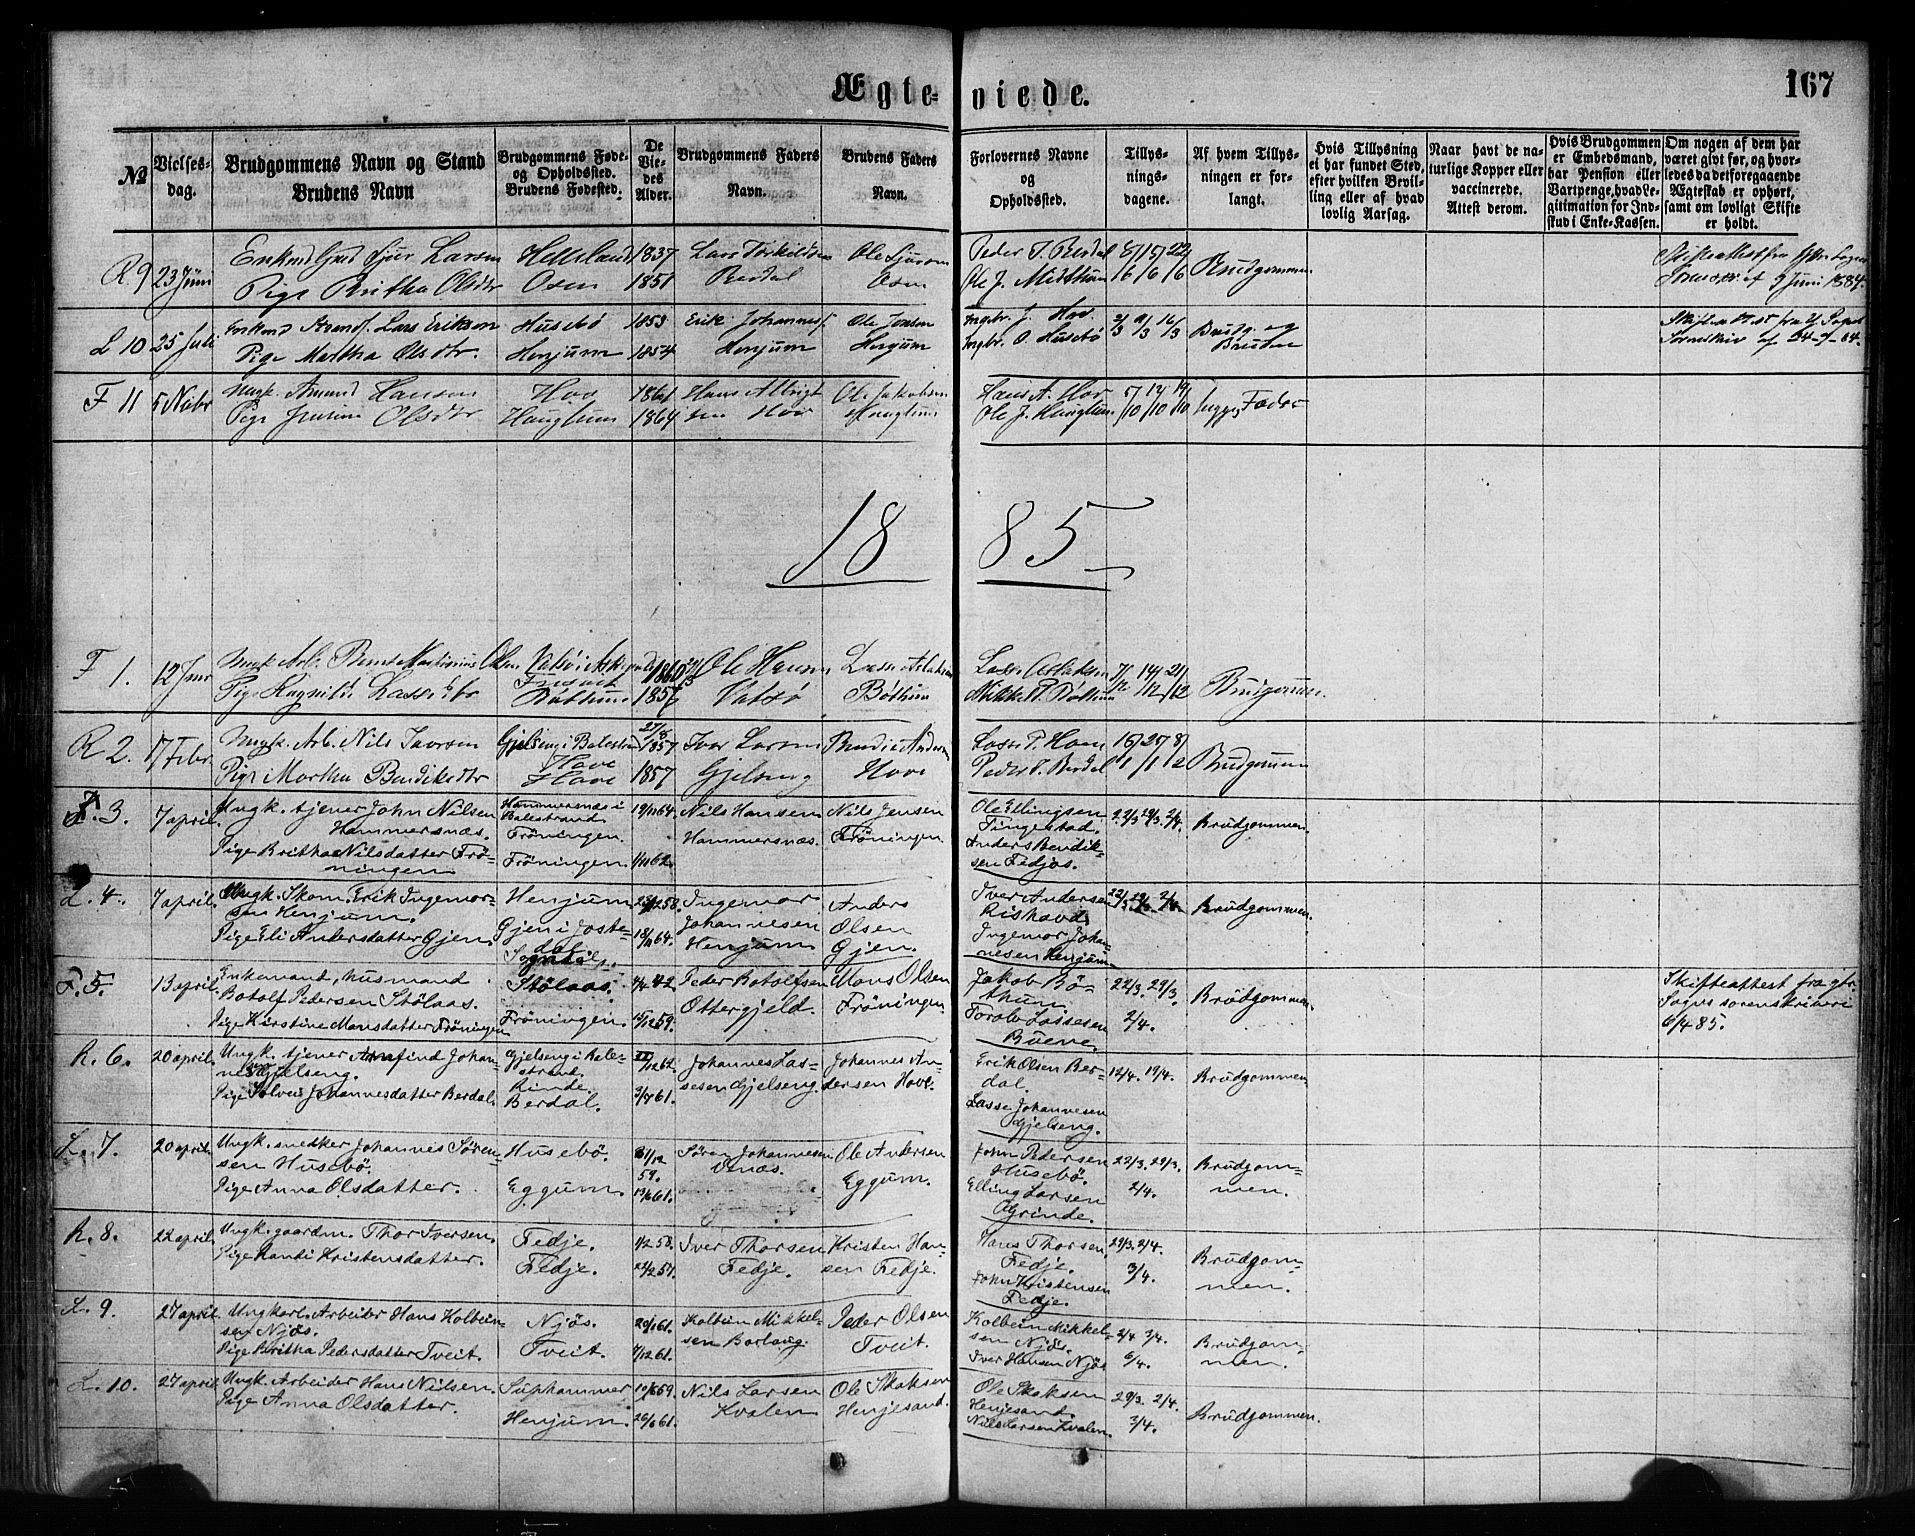 Ægte-viede.
167
№
Vielses-
dag.
Brudgommens Navn og Stand
Brudens Navn
Brudgommens Føde-
og Opholdssted.
Brudens Fødested.
De
Vie-
des
Alder.
Brudgommens Faders
Navn.
Brudens Faders
Navn.
Forlovernes Navne
og
Opholdssted.
Tillys-
nings-
dagene.
Af hvem Tillys-
ningen er for-
langt.
Hvis Tillysning
ei har fundet Sted,
efter hvilken Bevil-
ling eller af hvad
lovlig Aarsag.
Naar havt de na-
turlige Kopper eller
vaccinerede.
Attest derom.
Hvis Brudgommen
er Embedsmand,
har Pension eller
Vartpenge, hvad Le-
gitimation for Ind-
stud i Enke-Kassen.
Om nogen af dem har
været gift før, og hvor-
ledes da det foregaaende
Ægteskab er ophørt,
samt om lovligt Skifte
er holdt.
R. 9 23 Juni
Sjur Larsen
Pige Britha Olsdtr
Helleland
Osen
1837
1851
Berdal
Ole Sjursen
Osen
Peder T. Berdal
8/6 15/6 22/6
Brudgommen
3 Juni 1884.
L 10 25 Juli
Lars Eriksen
Pige Martha Olsdtr.
Husebø
Henjum
1853
1854
Erik Johannes.
Henjum
Ole Jonsen
Henjum
Ingbr. J. Hov
Ingbr. O. Husebø
2/3 9/3 16/3
Brudg. og
Bruden
F 11 5 Nvbr
Ungk. Amund Hansen
Olsdtr
Hov
Haugtun
1861
1864
Hans Albrigt
sen Hov
Ole Jakobsen
Haugtun
Hans A. Hov
Ole J. Haugtun
5/10 12/10 19/10
Begges Fædre
1885
F 1. 12 Jnr
Ungk. Arb. Bernt Martinius Olsen
Pige Ragnild Lassedtr
Bøthun
1860
1857
Ole Hansen
Vatsø
Lasse Aslaksen
Bøthun
Lasse Aslaksen
Mikkel P. Bøthun
7/12 14/12 21/12
Brudgommen.
R 2. 17 Febr.
Ungk. Arb. Nils Ivarsen
Pige Martha Bendiksdtr
Gjelseng i Balestrand
Hove
Hove
27/8 1857
1857
Ivar Larsen
Gjelseng
Bendik Andersen
Hove
Lasse P. Hove
Peder T. Berdal
Brudgommen
3. 7 april.
Ungk. tjener John Nilsen
Hammersnæs.
Pige Britha Nilsdatter Frö-
ningen
Hammersnæs i
Balestrand
Fröningen.
Fröningen
19/11 64.
1/11 62.
Nils Hansen
Hammersnæs.
Nils Jensen
Fröningen.
Ole Ellingsen
Tingestad.
Anders Bendik-
sen Fedjos.
22/3 29/3. 2/4.
Brudgommen.
L. 4. 7 april.
Ungk. Skom. Erik Ingemor-
sen Henjum.
Pige Eli Andersdatter Gjen.
Henjum
Gjen i Joste-
dal
18/11 64.
Ingemor
Johannesen
Henjum
Anders
Olsen
Gjen.
Iver Andersen
Rishovd
Ingemor Johan-
nesen Henjum
22/3 29/3. 2/4.
Brudgommen.
F. 5. 13 april.
Enkemand, husmand
Botolf Pedersen Stölaas.
Pige Kirstine Monsdatter Fröningen
Sogndal.
Stölaas.
Fröningen.
4/4 42
15/12 59.
Peder Botolfsen
Ottergjeld.
Mons Olsen
Fröningen
Jakob Bö-
thun
Torolv Lassesen
Buene.
22/3. 29/3.
2/4.
Brudgommen.
Skifteattest fra ytr.
Sogns sorenskriveri
6/4 85.
R. 6. 20 april.
Ungk. tjener Arnfind Johan-
nesen Gjelseng.
Pige Sölvei Johannesdatter Berdal.
Gjelseng i Bale-
strand.
Rinde.
Berdal.
/12 62.
3/7 61.
Johannes Las-
sesen Gjelseng.
Johannes An-
dersen Hove.
Erik Olsen Ber-
dal.
Lasse Johannesen
Gjelseng.
12/4. 19/4.
Brudgommen
L. 7. 20 april.
Ungk. snedker Johannes Sören-
sen Husebö.
Pige Anna Olsdatter.
Husebö.
Eggum.
31/12
59.
13/6 61.
Sören Johannesen
Ole Andersen
Eggum.
John Pedersen
Husebö.
Elling Larsen
Grinde.
22/3. 29/3.
2/4.
Brudgom-
men.
R. 8. 22 april.
Ungk. gaardm. Thor Iversen.
Pige Ranti Kristensdatter.
Fedje.
Fedje.
1/2 58.
Iver Thorsen
Fedje.
Kristen Han-
sen Fedje.
Hans Thorsen
Fedje.
John Kristensen
Fedje.
29/3. 2/4.
3/4.
Brudgom-
men.
L. 9. 27 april.
Ungkarl. Arbeider Hans Kolbein-
sen Njös.
Pige Britha Pedersdatter Tveit.
Njös.
Tveit.
20/1 61.
7/12 61.
Kolbein Mikkel-
sen Borlaug.
Peder Olsen
Tveit.
Kolbein Mikkel-
sen Njös.
Iver Hansen Njös
2/4 3/4.
6/4.
Brudgom-
men.
L. 10. 27 april.
Ungk. Arbeider Hans Nilsen.
Pige Anna Olsdatter.
Suphammer
Henjum.
10/6 59.
26/6 61.
Nils Larsen
Kvalen
Ole Skaksen
Henjesand.
Ole Skaksen
Henjesand.
Nils Larsen Kvalen.
29/3. 2/4.
3/4.
Brudgommen.